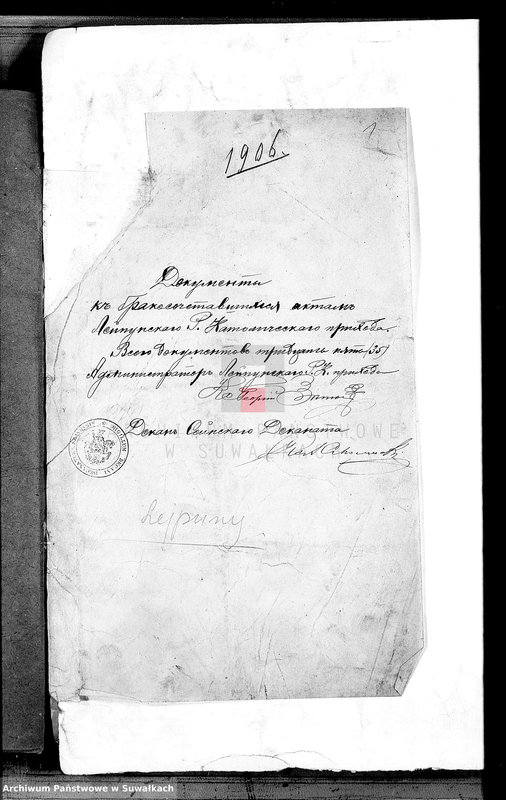 1906.
1
Документы
къ бракосочетавшимся актамъ
Лейпунского Р. Католического прихода.
Всего документовъ тридцать пять /35/
Администраторъ Лейпунского Р. К. прихода
Кс. Георгій
Деканъ Сейнского Деканата
W SUWAŁKACH
Lejpuny
Archiwum Państwowe w Suwałkach